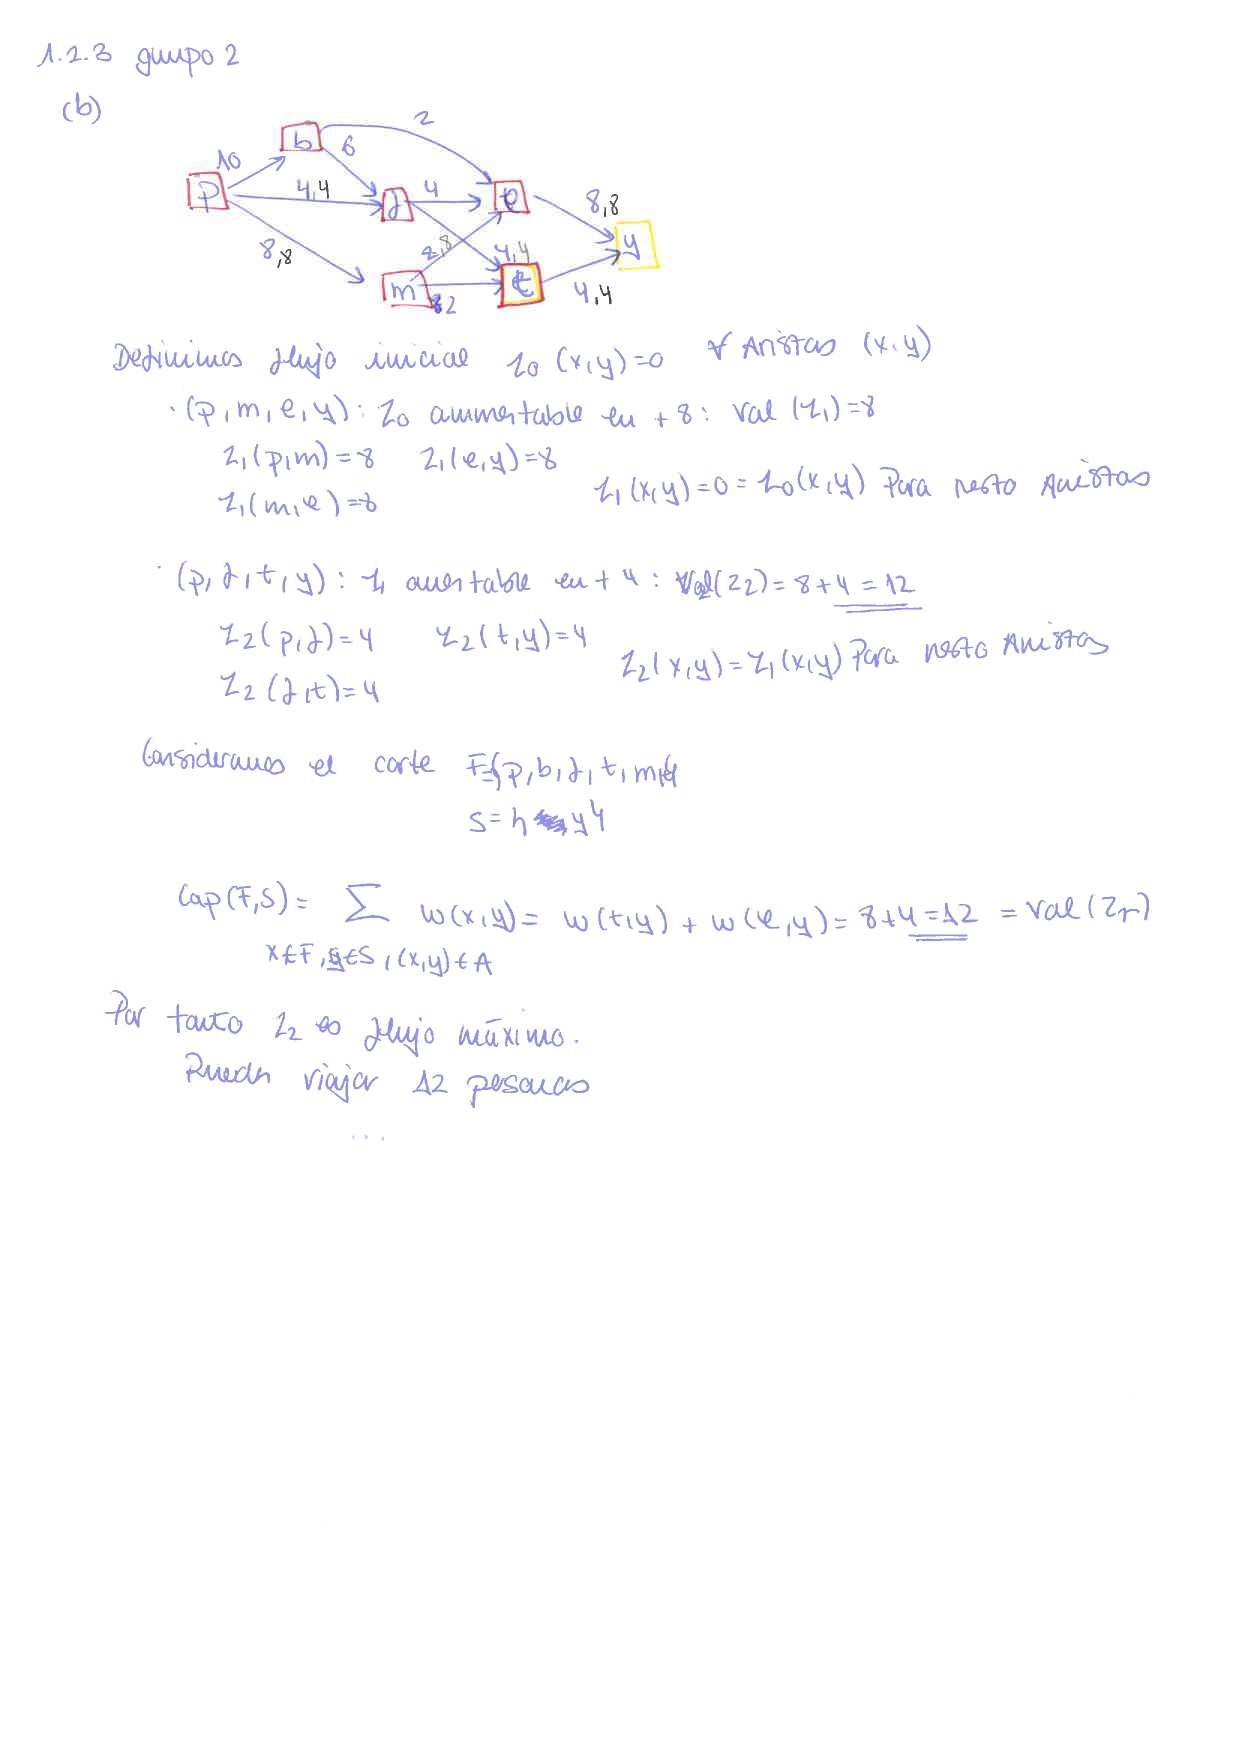 1.2.3 grupo 2
(b)
2
b 6
10
p 4,4 f 4 e 8,8
8,8 8 4,4 y
m 2 t 4,4
Definimos flujo inicial z₀ (x,y)=0 ∀ Aristas (x,y)
· (p,m,e,y): z₀ aumentable en +8: val (z₁)=8
z₁(p,m)=8 z₁(e,y)=8
z₁(m,e)=8 z₁(x,y)=0=z₀(x,y) Para resto Aristas
· (p,f,t,y): z₁ auentable en +4: Val(z₂)=8+4=12
z₂(p,f)=4 z₂(t,y)=4
z₂(f,t)=4 z₂(x,y)=z₁(x,y) Para resto Aristas
Consideramos el corte F={p,b,f,t,m,e}
S={y}
Cap(F,S)= Σ w(x,y)= w(t,y) + w(e,y)=8+4=12 = val(z₂)
x∈F,y∈S,(x,y)∈A
Por tanto z₂ es flujo máximo.
Pueden viajar 12 personas
...